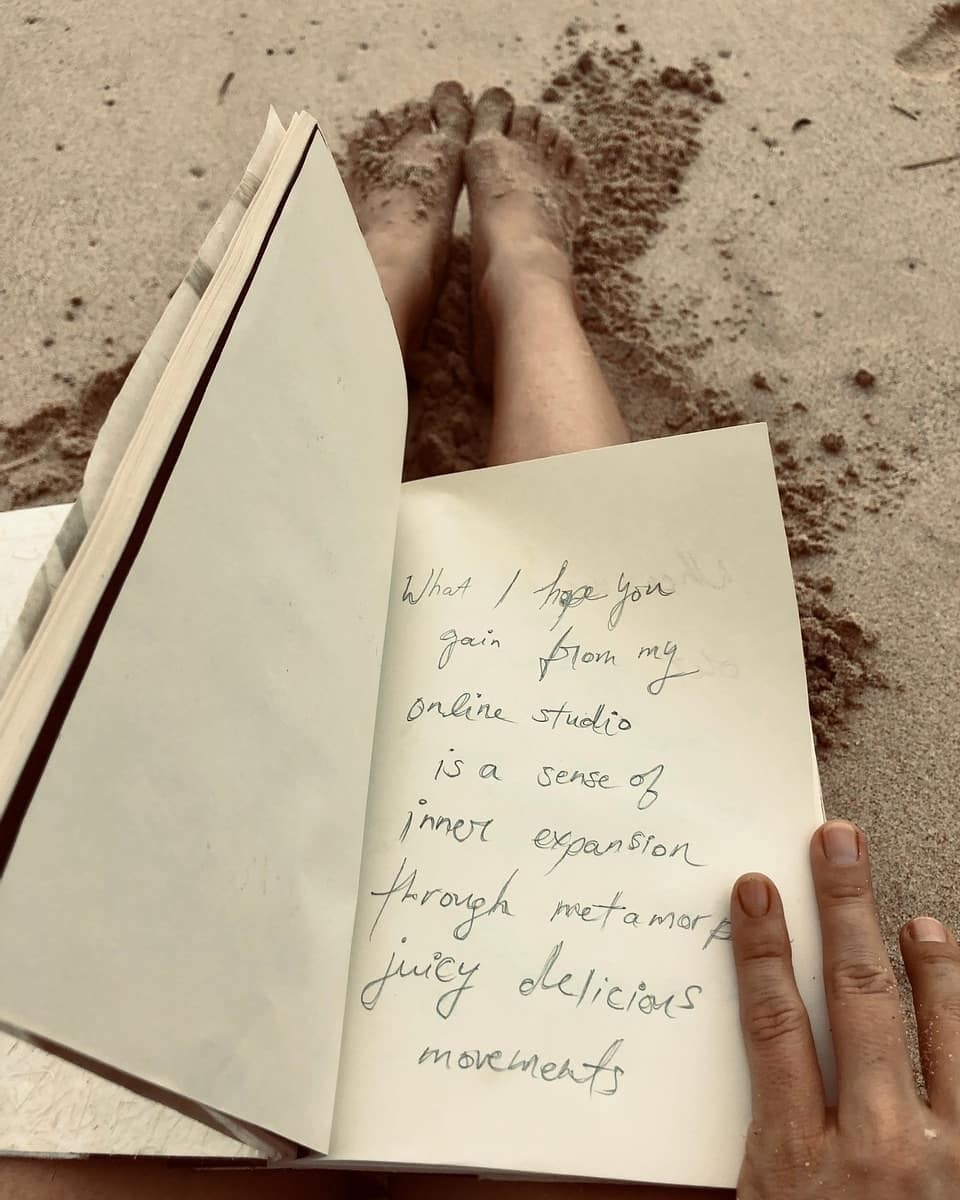 What I hope you
gain from my
online studio
is a sense of
inner expansion
through metamorp
juicy delicious
movements